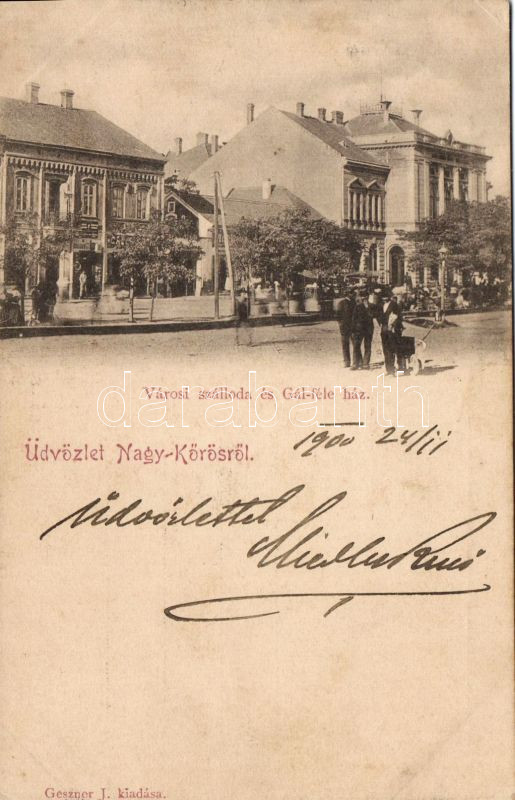 Városi szálloda és Gál-féle ház.
darabanth
Üdvözlet Nagy-Kőrösről.
1900 24/II
Üdvözlettel
Geszner J. kiadása.